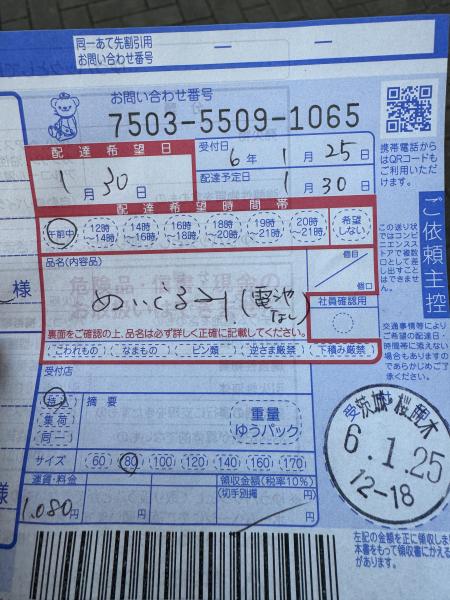 同一あて先割引用
お問い合わせ番号
お問い合わせ番号
7503-5509-1065
配達希望日
1月30日
受付日
6年1月25日
配達予定日
1月30日
携帯電話から
はQRコードも
ご利用いただ
けます。
配達希望時間帯
午前中
12時~14時
14時~16時
16時~18時
18時~20時
19時~21時
20時~21時
希望しない
この送り状
ではコンビ
ニエンスス
トアで複数
口として差
し出すこと
はできませ
ん。
ご依頼主控
様
品名(内容品)
ぬいぐるみ(電池なし)
個目
個口
社員確認用
裏面をご確認の上、品名は必ず詳しく正確に記載してください。
こわれもの
なまもの
ビン類
逆さま厳禁
下積み厳禁
交通事情等により
ご希望の配達日・
時間帯に添えない
場合もありますの
であらかじめご了
承ください。
受付店
持込
集荷
同一
摘要
重量
ゆうパック
サイズ 60 80 100 120 140 160 170
様
運賃・料金
1,080円
円
円
領収金額(税率10%)
(切手別納)
円
6.1.25
12-18
左記の金額を正に領収しま
本書をもって領収書にかえ